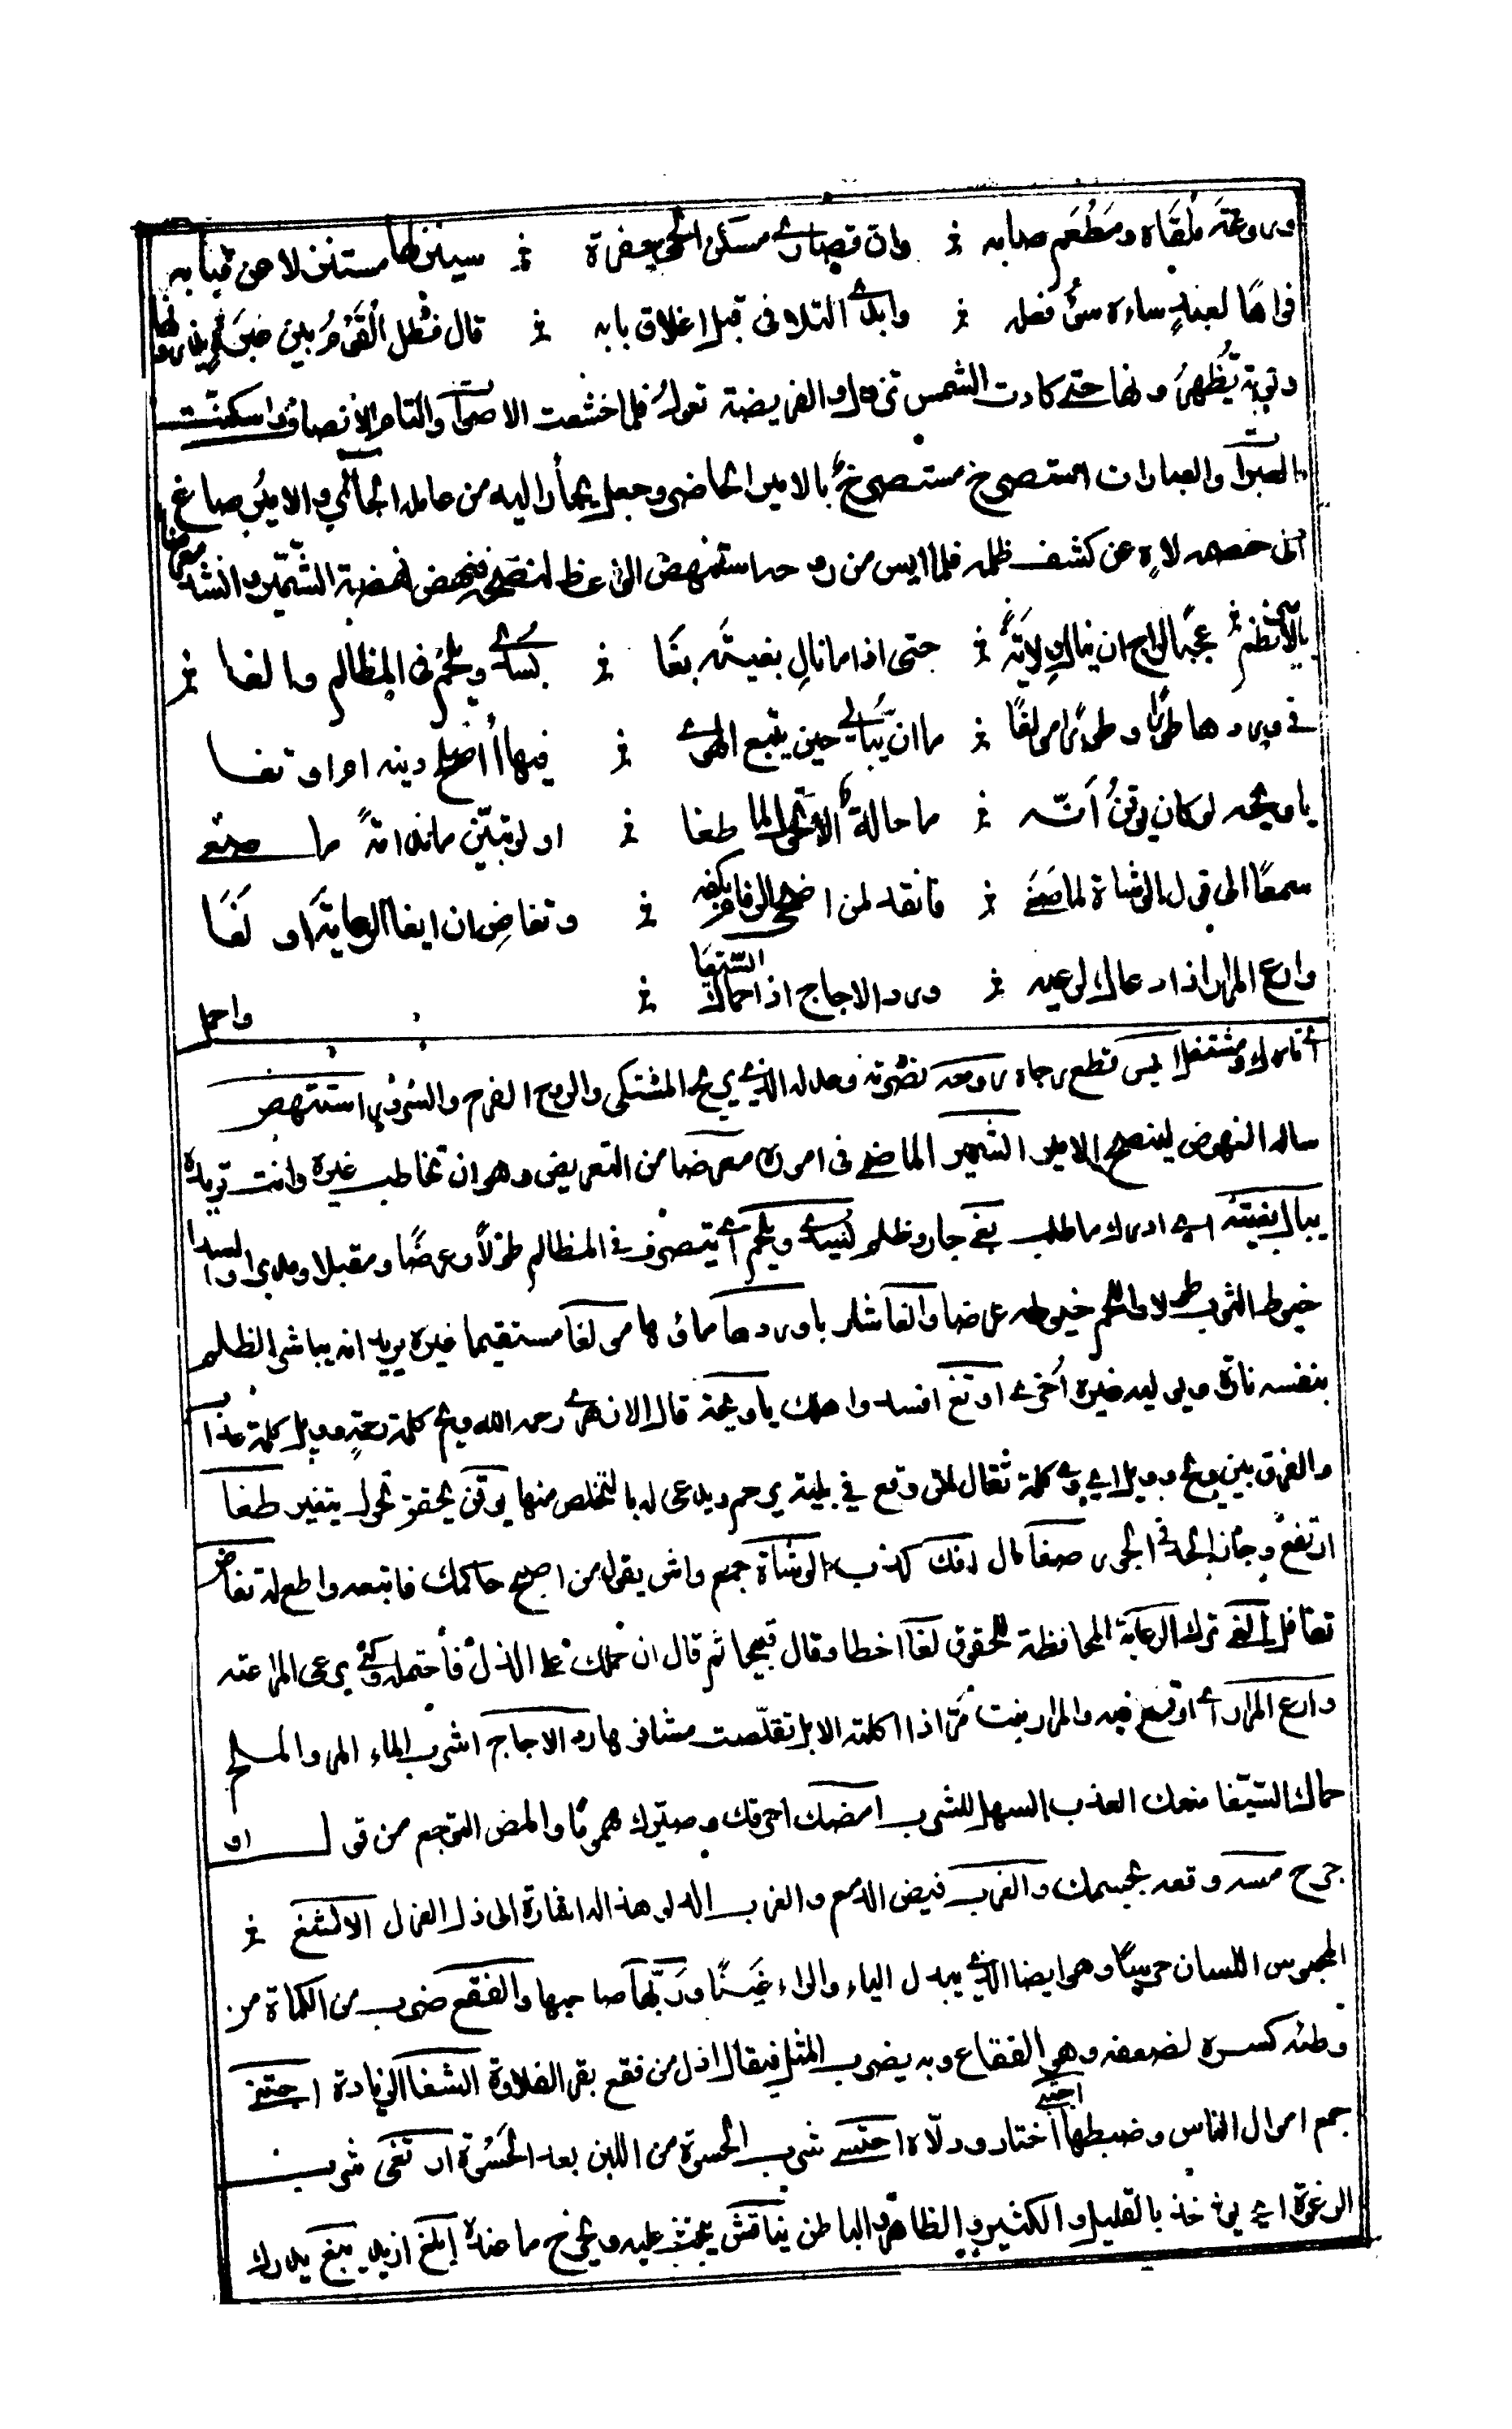 وروعة ملقاه ومطعم صابه وان قصارى مسكن الحي حفرة سينزلها مستنزلا عن قبابه
فواها لعبد ساءه سوء فعله وابدى التلافي قبل اغلاق بابه قال فظل القوم بين عبرة يذرونها
وتوبة يظهرونها حتى كادت الشمس تزول والفريضة تعول فلما خشعت الاصوات والتام الانصات واسكنت
العبرات والعبارات استصرخ مستصرخ بالامير الحاضر وجعل يجأر اليه من عامله الجائر والامير صاغ
الى خصمه لاه عن كشف ظلمه فلما ايس من روحه استنهض الواعظ لنصحه فنهض نهضة الشمير وانشد معرضا
بالامير نظم عجبا لراج ان ينال ولاية حتى اذا ما نال بغيته بغا يسدي ويلحم في المظالم والغا
في وردها طورا وطورا مولغا ما ان يبالي حين يتبع الهوى فيها أأصلح دينه ام اوتغا
يا ويحه لو كان يوقن أنه ما حالة الا تحول لما طغا او لو تبين ما ندامة من صغى
سمعا الى قول الوشاة لما صغى فانقد لمن اضحى الزمام بكفه وتغاض ان الغى الرعاية او لغا
وارع المرار اذا دعاك لرعيه ورد الاجاج اذا حماك السيغا واحمل
قطع رجاه روحه نصرته وعدله الذي يريح المشتكي والروح الفرح والسرور استنهض
ساله النهوض لينصح الامير الشمير الماضي في اموره معرضا من التعريض وهو ان تخاطب غيره وانت تريده
ينال بغيته اي ادرك ما طلب بغى جار وظلم يسدي ويلحم اي يتصرف في المظالم طولا وعرضا ومقبلا ومدبرا والسدا
خيوط الثوب طولا واللحم خيوطه عرضا والغا شارب وردها ماؤها مولغا مستقيما غيره يريد انه يباشر الظلم
بنفسه تارة ويوليه غيره أخرى اوتغ افسد واهلك يا ويحه قال الازهري رحمه الله ويح كلمة رحمة وويل كلمة عذاب
والفرق بين ويح وويل ان ويح كلمة تقال لمن وقع في بلية يرحم ويدعى له بالتخلص منها يوقن يحقق تحول يتغير طغا
ارتفع وجاز الحد في الجور صغا مال افك كذب الوشاة جمع واش يقول من اصبح حاكمك فاتبعه واطع له تغاض
تغافل الغى ترك الرعاية المحافظة للحقوق لغا اخطا وقال قبيحا ثم قال ان حملك على الذل فاحتمله وكنى برعي المرار عنه
وارع المرار اي اوقع فيه والمرار نبت مر اذا اكلته الابل تقلصت مشافرها رد الاجاج اشرب الماء المر والملح
حماك السيغا منعك العذب السهل للشرب امضك احرقك وصيرك مهموما والمض التوجع من قول او
جرح مسه وقعه بجسمك والغرب فيض الدمع والغرب الدلو هذا اشارة الى ذل العزل الالثغ
المحبوس اللسان وهو ايضا الذي يبدل الياء والراء غينا وربها صاحبها والفقع ضرب من الكماة من
وطئه كسره لضعفه وهو الفقاع وبه يضرب المثل فيقال اذل من فقع بقر الفلاة الشغا الزيادة اجتبى
جمع اموال الناس وضبطها اجتبي اختار وولاه احتسى شرب الحسوة من اللبن بعد الحسوة ارتغى شرب
الرغوة اي يؤخذ بالقليل والكثير والظاهر والباطن يناقش يبحث عليه ويخرج ما عنده ابلغ اريد يبتغ يدرك